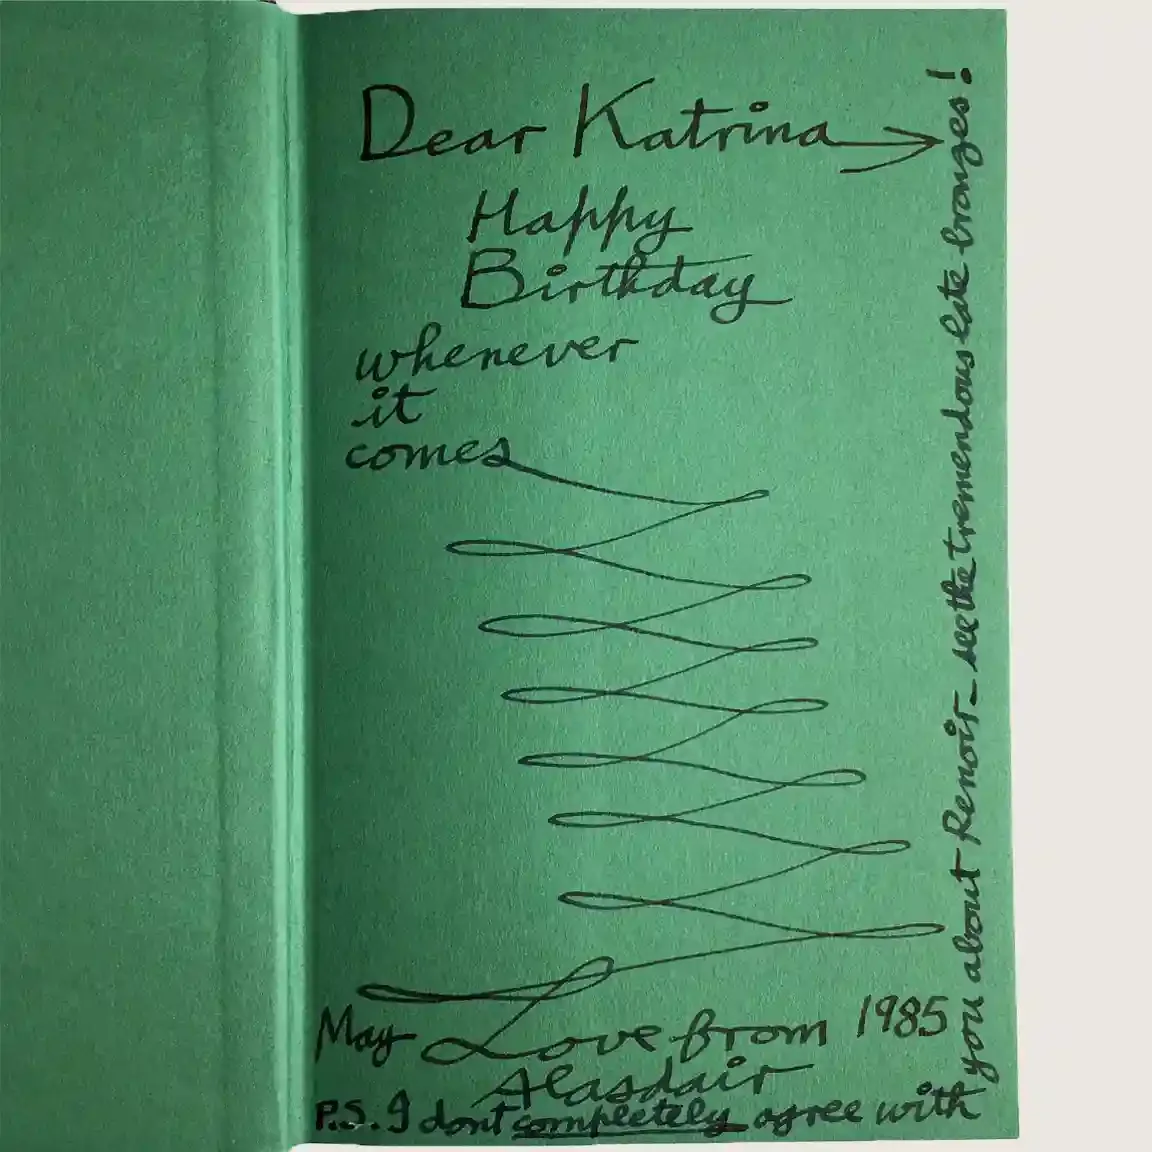 Dear Katrina
Happy
Birthday
whenever
it
comes
May Love from 1985
Alasdair
P.S. I dont completely agree with
you about Renoir - see the tremendous late bronzes!